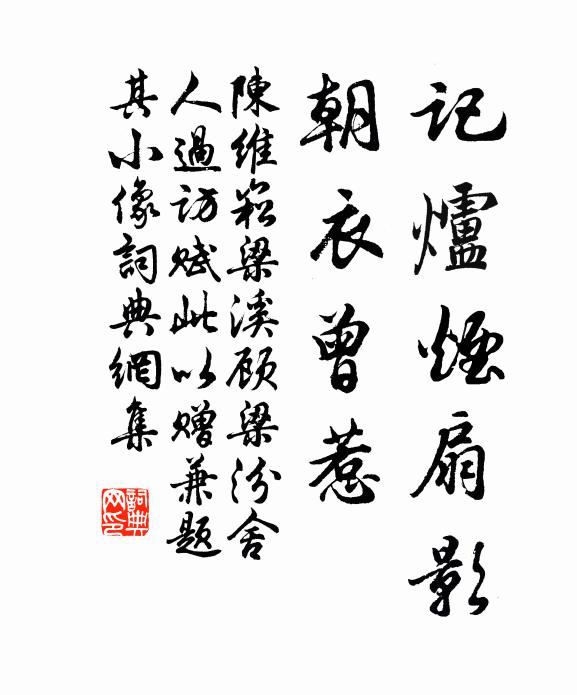 記爐煙扇影
朝衣曾惹
陳維崧梁溪顧梁汾舍
人過訪賦此以贈兼題
其小像詞典網集
詞典網印